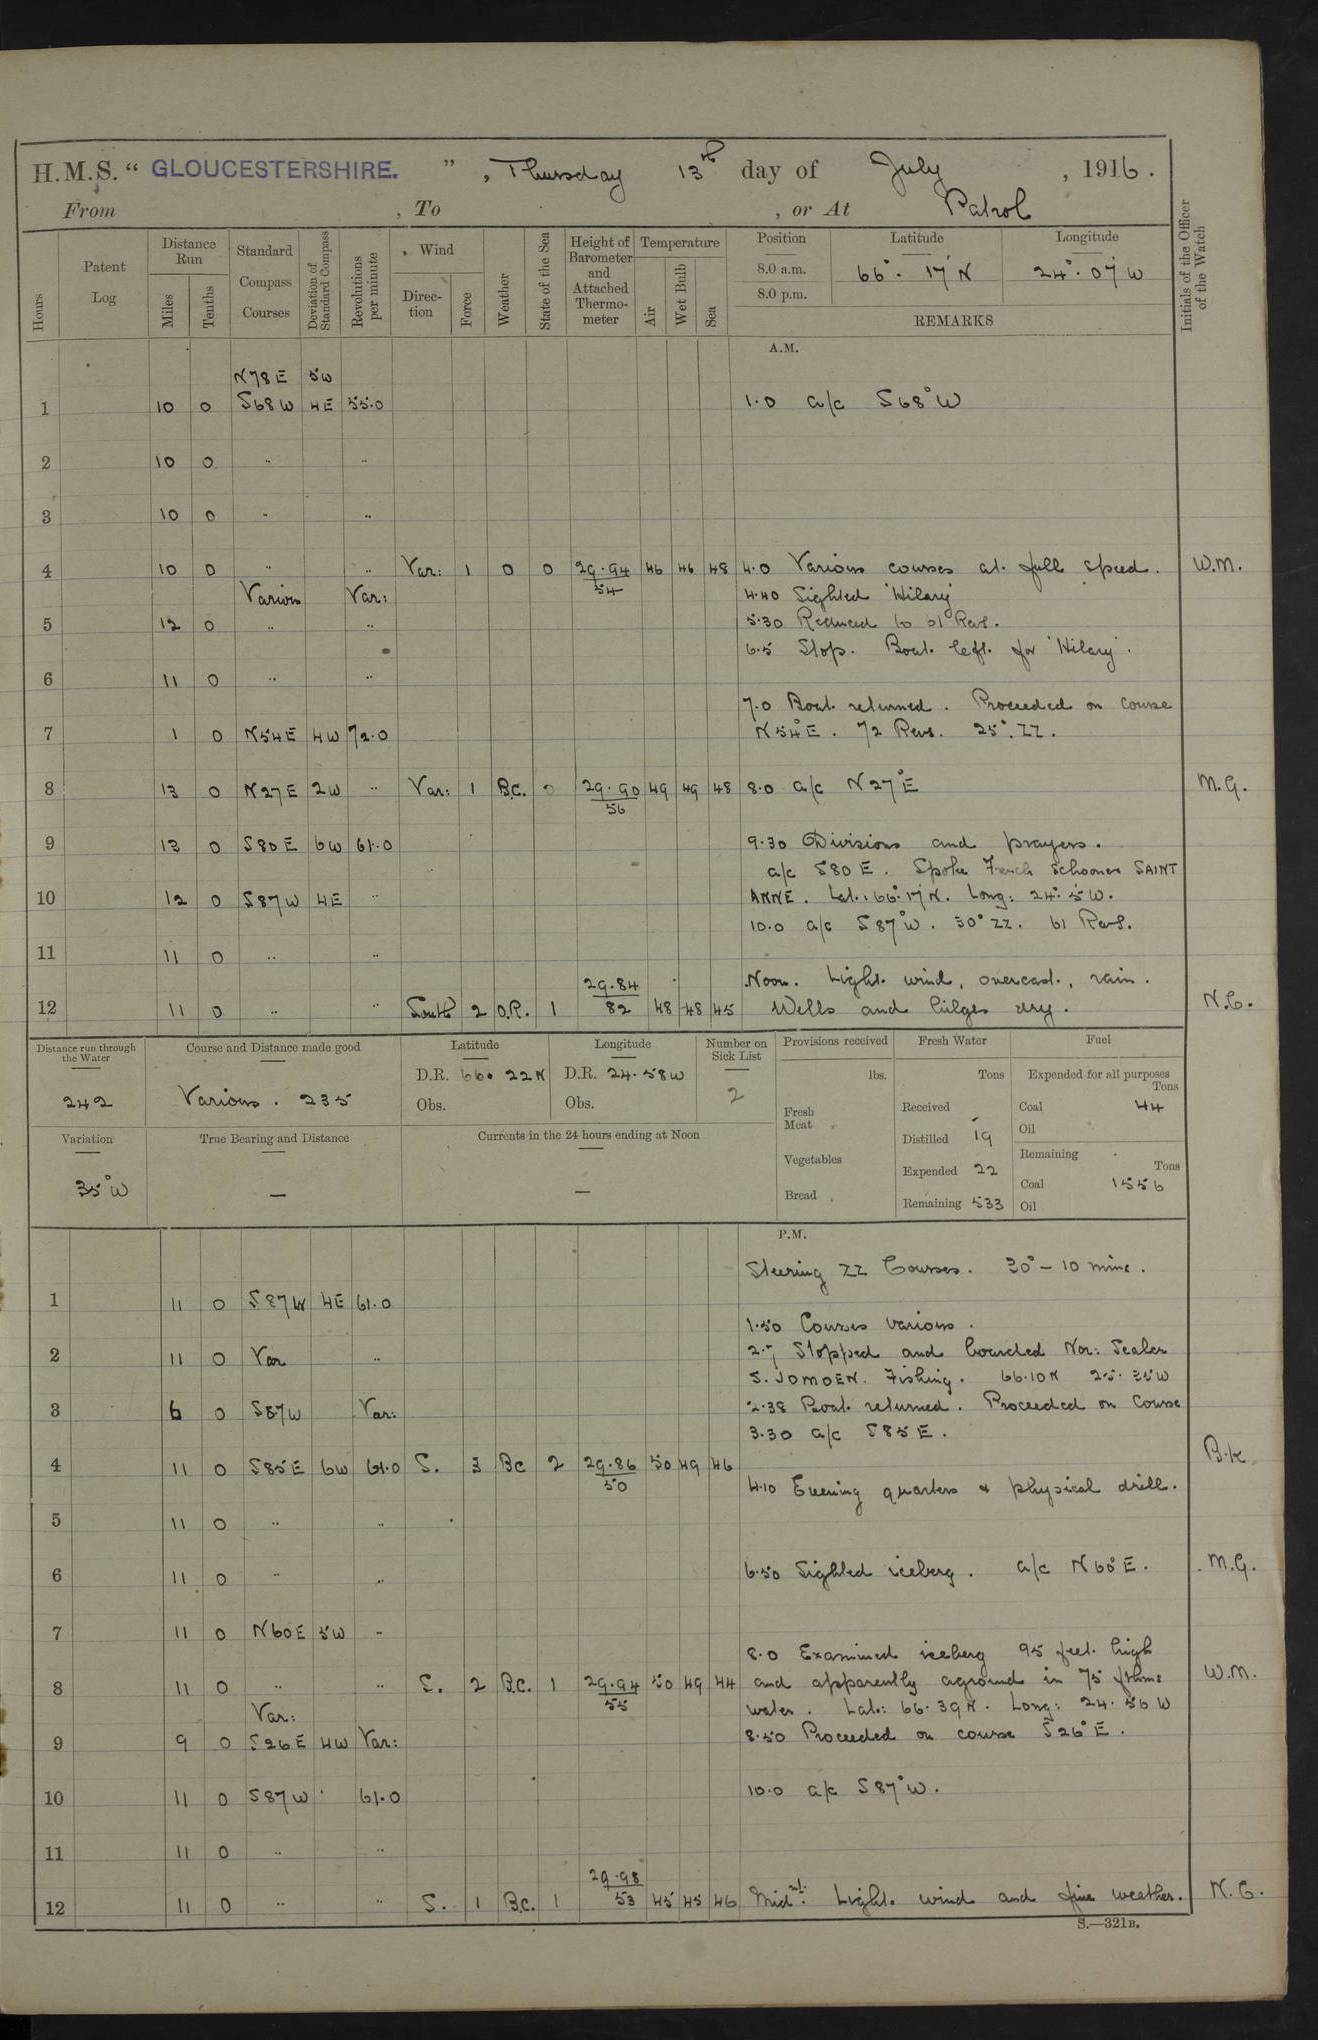 H.M.S. " GLOUCESTERSHIRE. " , Thursday 13th day of July , 1916 .
From , To , or At Patrol
Hours
Patent Log
Distance Run
Miles
Tenths
Standard Compass Courses
Deviation of Standard Compass
Revolutions per minute
Wind
Direction
Force
Weather
State of the Sea
Height of Barometer and Attached Thermometer
Temperature
Air
Wet Bulb
Sea
Position Latitude Longitude
8.0 a.m. 66°. 17' N 24°. 07' W
8.0 p.m.
REMARKS
Initials of the Officer of the Watch
A.M.
N78E 5W
1 10 0 S68W 4E 55.0 1.0 a/c S68°W
2 10 0 " "
3 10 0 " "
4 10 0 " " Var: 1 0 0 29.94/54 46 46 48 4.0 Various courses at full speed. W.M.
Various Var: 4.40 Sighted 'Hilary'
5 12 0 " " 5.30 Reduced to 61 Revs.
6.5 Stop. Boat left for 'Hilary'.
6 11 0 " "
7.0 Boat returned. Proceeded on course
7 1 0 N54E 4W 72.0 N54°E. 72 Revs. 25°. ZZ.
8 13 0 N27E 2W " Var: 1 B.C. 0 29.90/56 49 49 48 8.0 a/c N27°E M.G.
9 13 0 S80E 6W 61.0 9.30 Divisions and prayers.
a/c S80E. Spoke French Schooner SAINT
10 12 0 S87W 4E " ANNE. Lat: 66°.17'N. Long: 24°.5'W.
10.0 a/c S87°W. 30° ZZ. 61 Revs.
11 11 0 " "
Noon. Light wind, overcast, rain.
12 11 0 " " South 2 O.R. 1 29.84/82 48 48 45 Wells and bilges dry. N.C.
Distance run through the Water
242
Course and Distance made good
Various. 235
Latitude
D.R. 66. 22N
Obs.
Longitude
D.R. 24. 58W
Obs.
Number on Sick List
2
Provisions received
lbs.
Fresh Meat
Vegetables
Bread
Fresh Water
Tons
Received -
Distilled 19
Expended 22
Remaining 533
Fuel
Expended for all purposes
Tons
Coal 44
Oil
Remaining
Tons
Coal 1556
Oil
Variation
35°W
True Bearing and Distance
—
Currents in the 24 hours ending at Noon
—
P.M.
Steering ZZ Courses. 30° – 10 mins.
1 11 0 S87W 4E 61.0
1.50 Courses various.
2 11 0 Var " Stopped and boarded Nor: Sealer
S. JOMOEN. Fishing. 66.10N 25. 35W
3 6 0 S87W Var: 2.38 Boat returned. Proceeded on course
3.30 a/c S85E.
4 11 0 S85E 6W 61.0 S. 3 BC 2 29.86/50 50 49 46 B.K.
4.10 Evening quarters & physical drill.
5 11 0 " "
6 11 0 " " 6.50 Sighted iceberg. a/c N60°E. M.G.
7 11 0 N60E 5W "
8.0 Examined iceberg 95 feet high
8 11 0 " " S. 2 B.C. 1 29.94/55 50 49 44 and apparently aground in 75 fthms W.M.
Var: water. Lat: 66. 39N. Long: 24. 56 W
9 9 0 S26E 4W Var: 8.50 Proceeded on course S26°E.
10 11 0 S87W 61.0 10.0 a/c S87°W.
11 11 0 " "
12 11 0 " " S. 1 B.C. 1 29.98/53 45 45 46 Midt. Light wind and fine weather. N.C.
S.—321B.